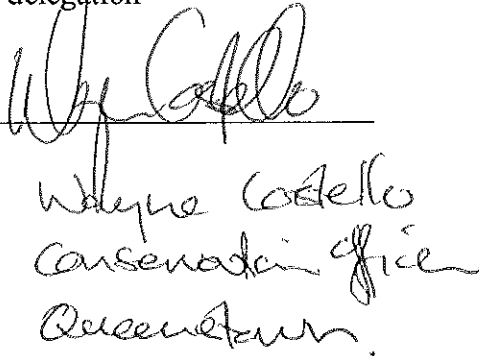 delegation
Wayne Costello
Wayne Costello
Conservation Officer
Queenstown.